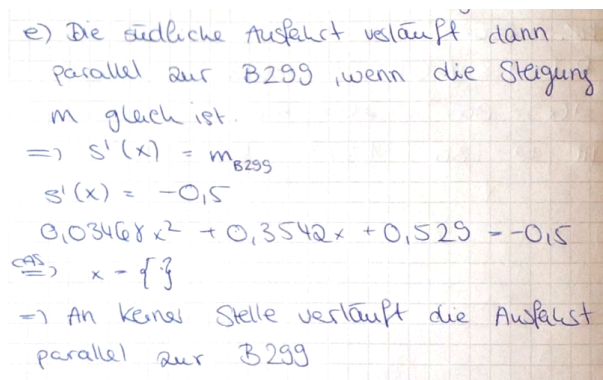 e) Die südliche Ausfahrt verläuft dann
parallel zur B299, wenn die Steigung
m gleich ist.
=> s'(x) = m_B299
s'(x) = -0,5
0,03468x² + 0,3542x + 0,529 = -0,5
CAS => x = { }
=> An keiner Stelle verläuft die Ausfahrt
parallel zur B299